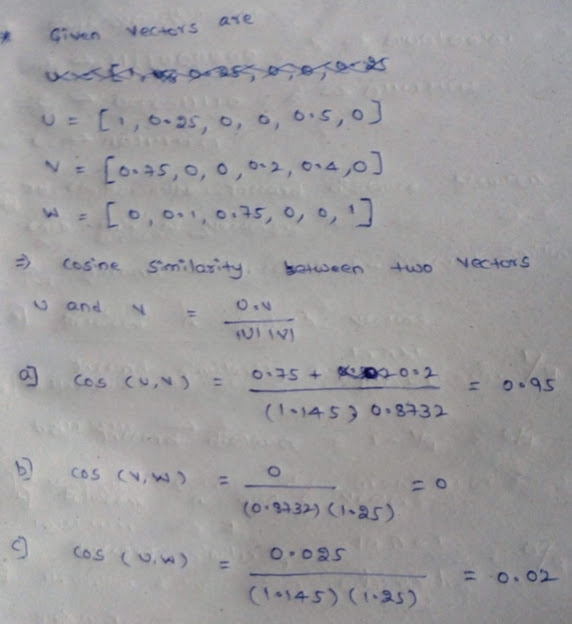 * Given vectors are
U = [1, 0.25, 0, 0, 0.5, 0]
V = [0.75, 0, 0, 0.2, 0.4, 0]
W = [0, 0.1, 0.75, 0, 0, 1]
⇒ Cosine Similarity between two vectors
U and V = U.V / |U| |V|
a] cos (U,V) = 0.75 + 0.2 / (1.145) 0.8732 = 0.95
b) cos (V,W) = 0 / (0.8732) (1.25) = 0
c) cos (U,W) = 0.025 / (1.145) (1.25) = 0.02